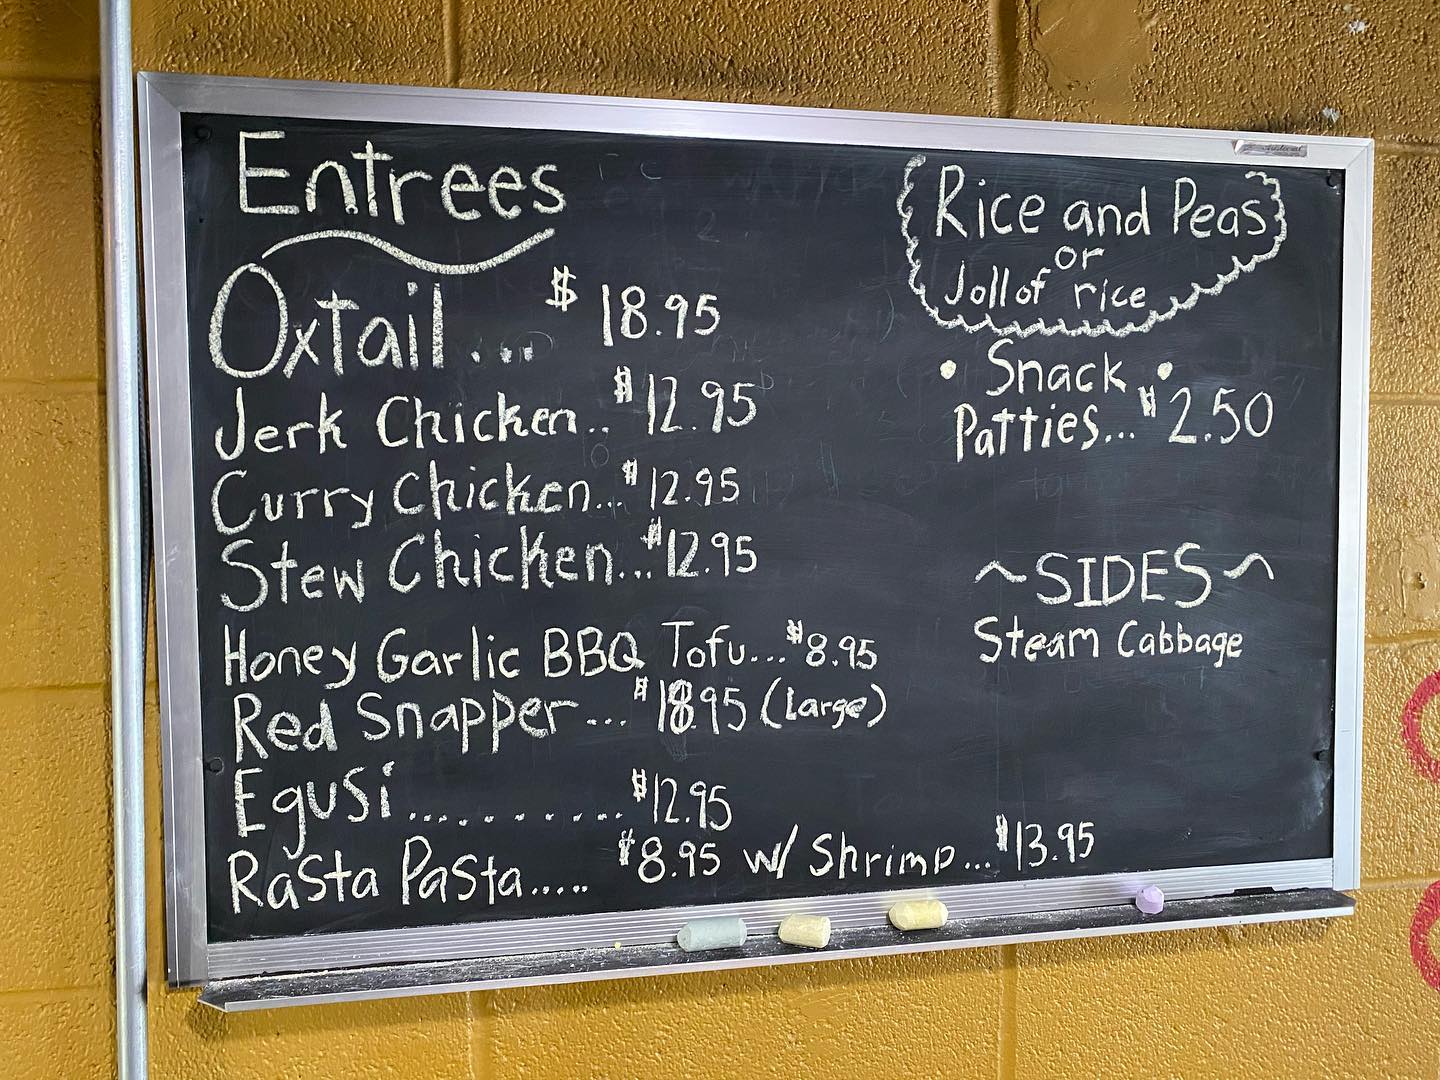 Entrees
Oxtail... $18.95
Jerk Chicken.. $12.95
Curry Chicken... $12.95
Stew Chicken... $12.95
Honey Garlic BBQ Tofu... $8.95
Red Snapper... $18.95 (large)
Egusi.......... $12.95
Rasta Pasta..... $8.95 w/ Shrimp... $13.95
Rice and Peas
or
Jollof rice
• Snack •
Patties... $2.50
~SIDES~
Steam Cabbage